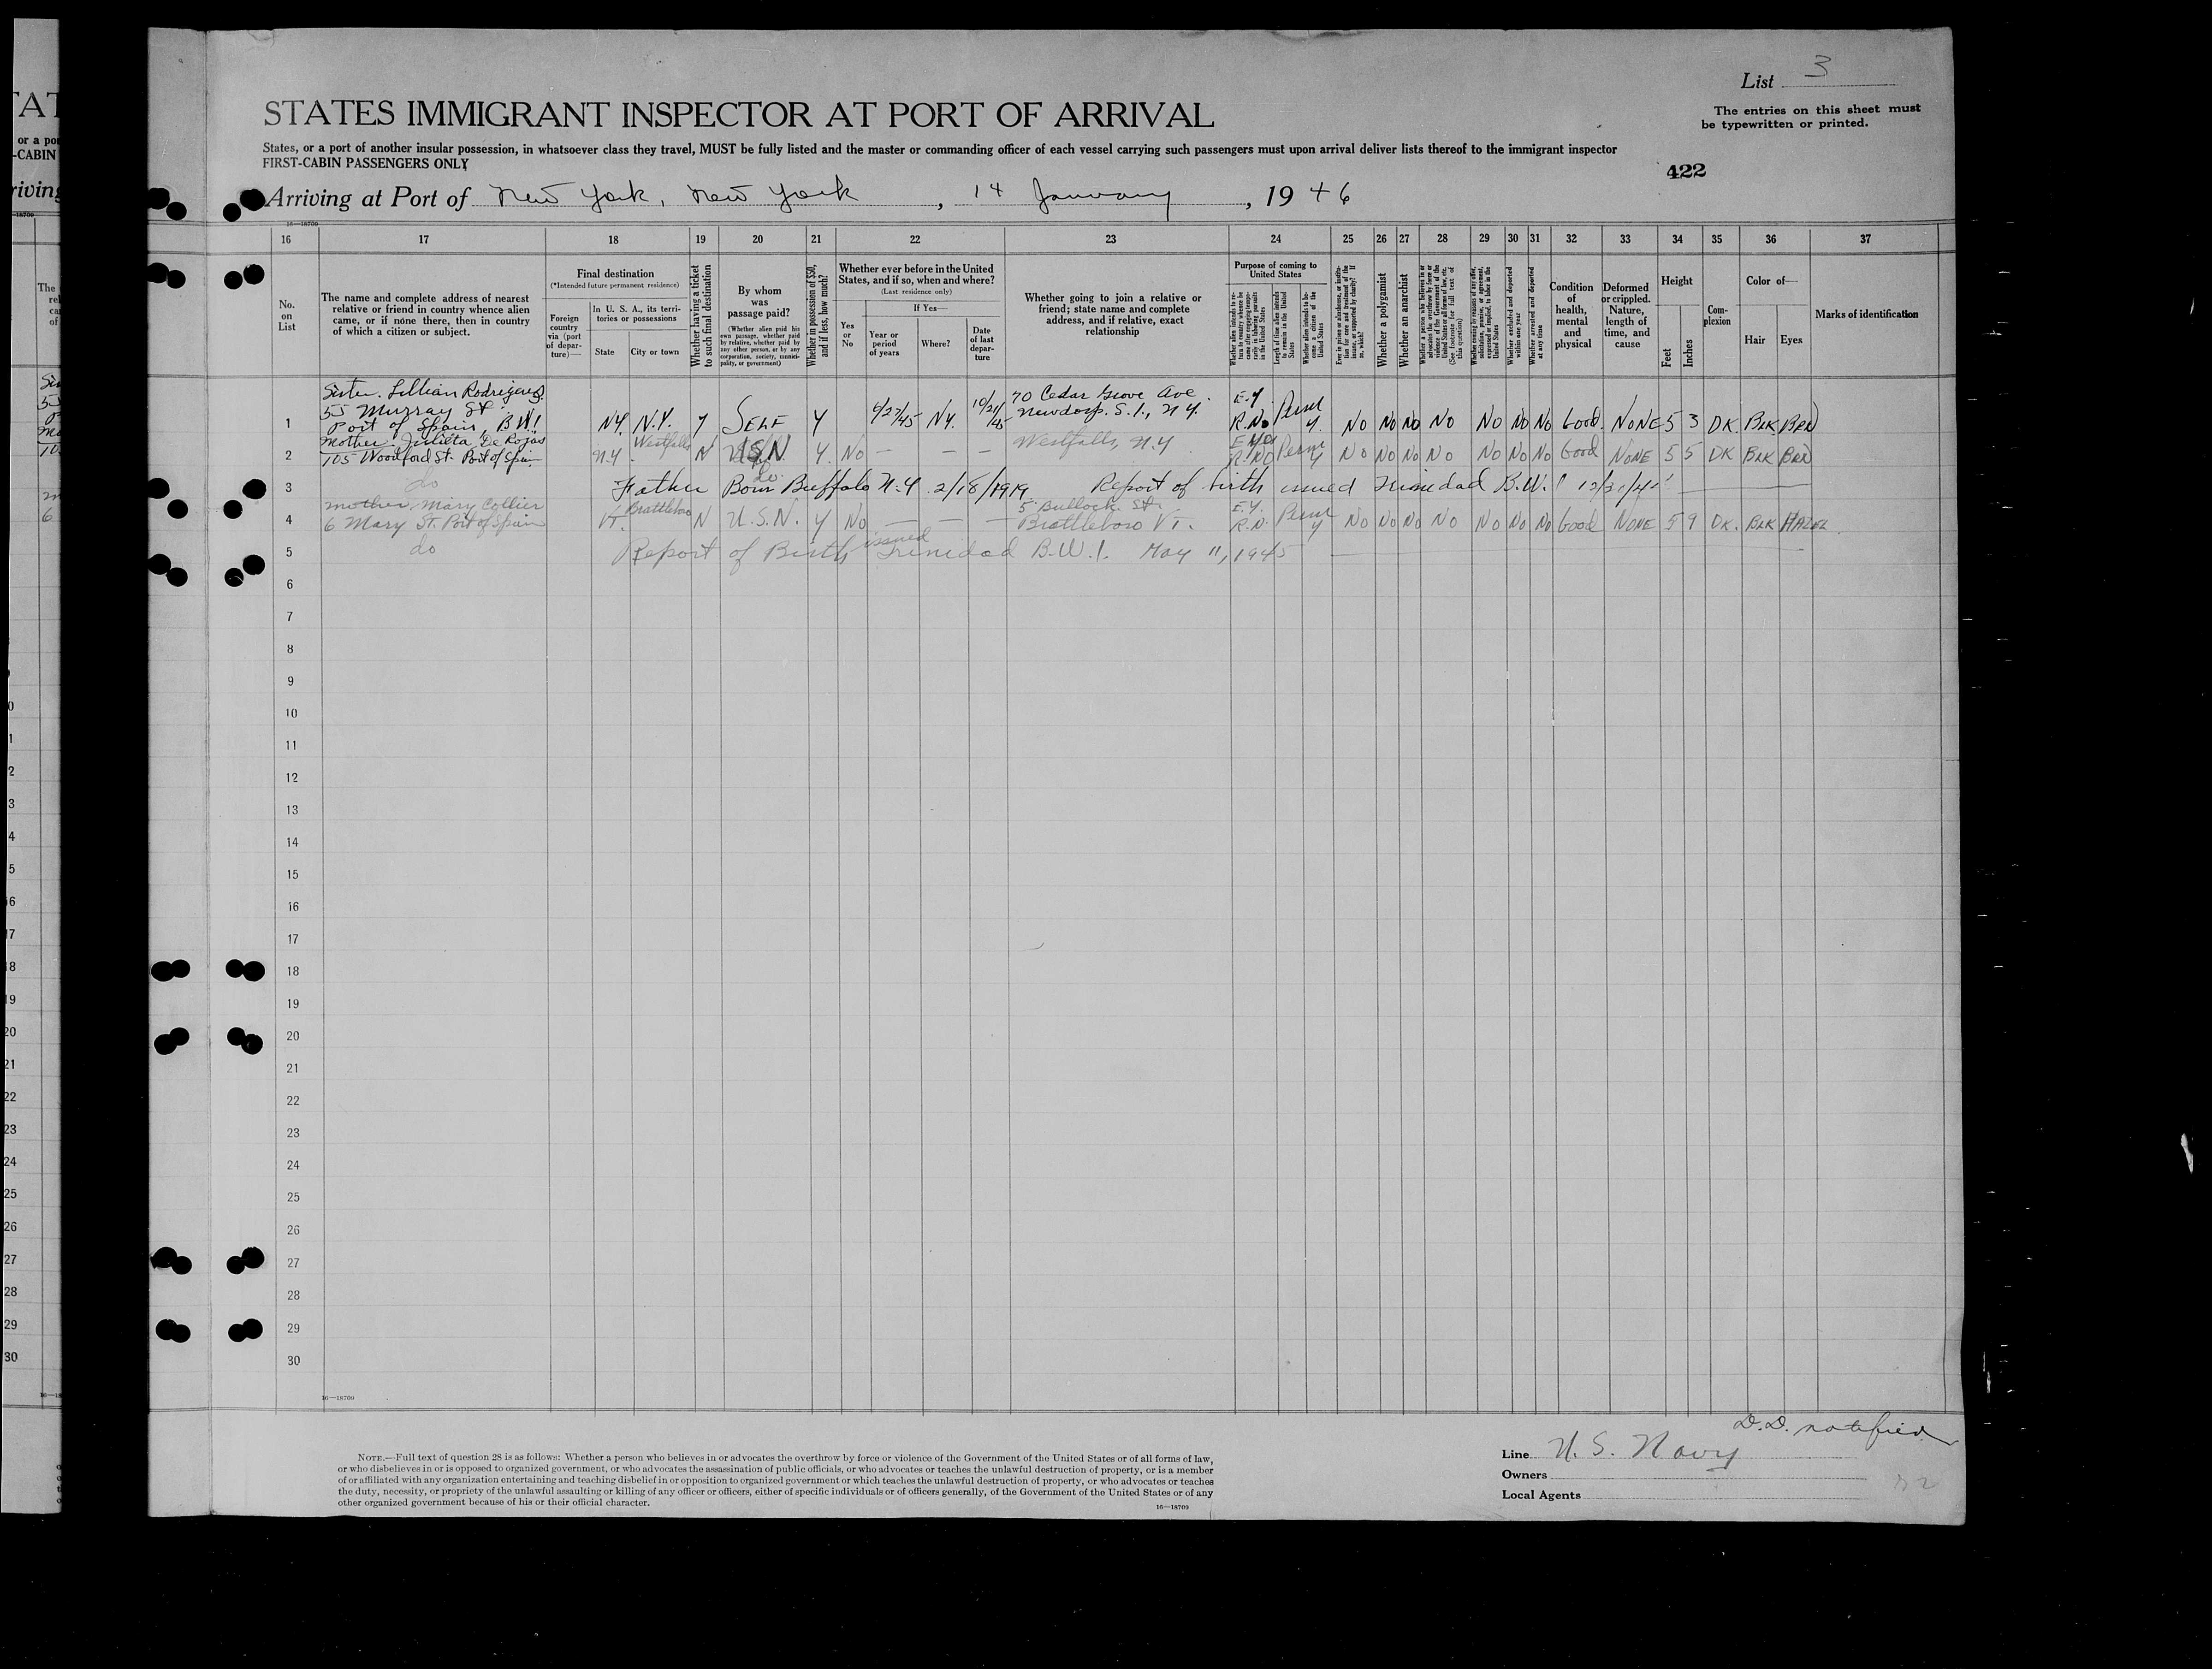 List 3
The entries on this sheet must
be typewritten or printed.
STATES IMMIGRANT INSPECTOR AT PORT OF ARRIVAL
States, or a port of another insular possession, in whatsoever class they travel, MUST be fully listed and the master or commanding officer of each vessel carrying such passengers must upon arrival deliver lists thereof to the immigrant inspector
FIRST-CABIN PASSENGERS ONLY
422
Arriving at Port of New York, New York, 14 January, 1946
16—18709
16 17 18 19 20 21 22 23 24 25 26 27 28 29 30 31 32 33 34 35 36 37
No.
on
List
The name and complete address of nearest
relative or friend in country whence alien
came, or if none there, then in country
of which a citizen or subject.
Final destination
(*Intended future permanent residence)
Foreign
country
via (port
of depar-
ture)—
In U. S. A., its terri-
tories or possessions
State
City or town
Whether having a ticket
to such final destination
By whom
was
passage paid?
(Whether alien paid his
own passage, whether paid
by relative, whether paid by
any other person, or by any
corporation, society, munici-
pality, or government)
Whether in possession of $50,
and if less, how much?
Whether ever before in the United
States, and if so, when and where?
(Last residence only)
Yes
or
No
If Yes—
Year or
period
of years
Where?
Date
of last
depar-
ture
Whether going to join a relative or
friend; state name and complete
address, and if relative, exact
relationship
Purpose of coming to
United States
Length of time alien intends
to remain in the United
States
Whether alien intends to be-
come a citizen of the
United States
Whether a polygamist
Whether an anarchist
Whether excluded and deported
within one year
Whether arrested and deported
at any time
Condition
of
health,
mental
and
physical
Deformed
or crippled.
Nature,
length of
time, and
cause
Height
Feet
Inches
Com-
plexion
Color of—
Hair
Eyes
Marks of identification
Sister. Lillian Rodrigues
55 Murray St.
Port of Spain, B.W.I
1 N.Y. N.Y. Y SELF Y 4/27/45 N.Y. 10/21/45 70 Cedar Grove Ave. Newdorp. S.I., N.Y. E.Y. R.No Perm Y. No No No No No No No Good. NONE 5 3 DK. BLK BRN
Mother. Julieta De Rojas
105 Woodford St. Port of Spain
2 N.Y. Westfalls N U.S.N. Y. No — — — Westfalls, N.Y R.No Perm Y No No No No No No No Good NONE 5 5 DK BLK BRN
3 do Father Born Buffalo N.Y. 2/18/1919 Report of birth issued Trinidad B.W.I
mother, Mary Collier
6 Mary St. Port of Spain
4 VT. Brattleboro N U.S.N. Y No — — — 5 Bullock St. Brattleboro VT. E.Y. R.N. Perm Y No No No No No No No Good NONE 5 9 DK. BLK HAZEL
5 do Report of Birth issued Trinidad B.W.I. May 11, 1945
6
7
8
9
10
11
12
13
14
15
16
17
18
19
20
21
22
23
24
25
26
27
28
29
30
16—18709
D.D. notified
NOTE.—Full text of question 28 is as follows: Whether a person who believes in or advocates the overthrow by force or violence of the Government of the United States or of all forms of law,
or who disbelieves in or is opposed to organized government, or who advocates the assassination of public officials, or who advocates or teaches the unlawful destruction of property, or is a member
of or affiliated with any organization entertaining and teaching disbelief in or opposition to organized government or which teaches the unlawful destruction of property, or who advocates or teaches
the duty, necessity, or propriety of the unlawful assaulting or killing of any officer or officers, either of specific individuals or of officers generally, of the Government of the United States or of any
other organized government because of his or their official character.
16—18709
Line U. S. Navy
Owners
Local Agents